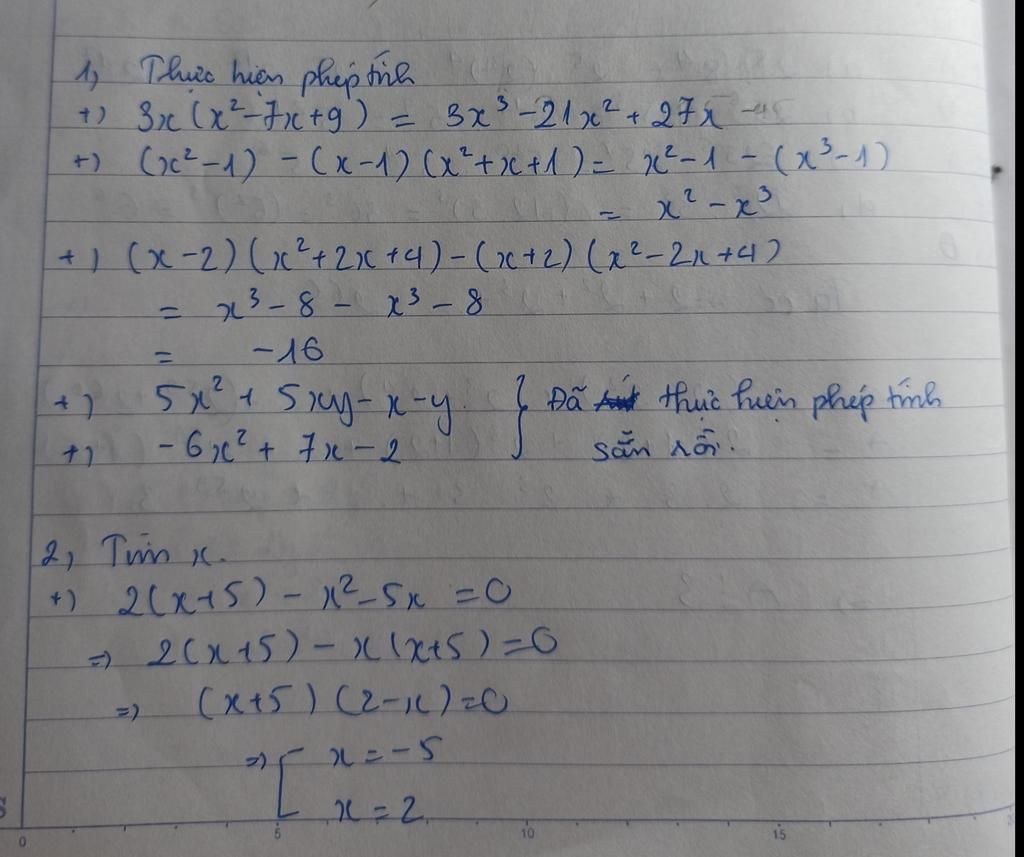 1, Thực hiện phép tính
+) 3x(x²-7x+9) = 3x³-21x²+27x
+) (x²-1) - (x-1)(x²+x+1) = x²-1 - (x³-1)
= x² - x³
+) (x-2)(x²+2x+4) - (x+2)(x²-2x+4)
= x³ - 8 - x³ - 8
= -16
+) 5x² + 5xy - x - y } Đã thực hiện phép tính
+) -6x² + 7x - 2 sẵn rồi.
2, Tìm x.
+) 2(x+5) - x² - 5x = 0
=> 2(x+5) - x(x+5) = 0
=> (x+5)(2-x) = 0
=> [ x = -5
x = 2
0 5 10 15